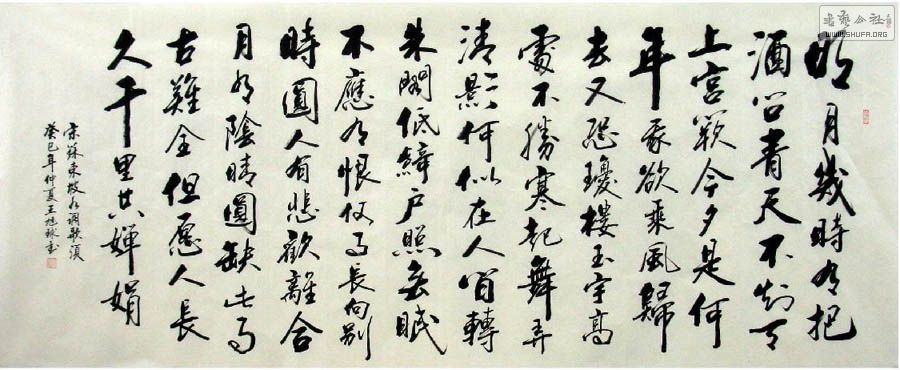 明月幾時有把
酒问青天不知天
上宫闕今夕是何
年我欲乘風歸
去又恐瓊樓玉宇高
處不勝寒起舞弄
清影何似在人间轉
朱閣低綺户照無眠
不應有恨何事長向别
時圓人有悲歡離合
月有陰晴圓缺此事
古難全但愿人長
久千里共嬋娟
宋蘇東坡水调歌頭
癸巳年仲夏王旭書
书艺公社
WWW.SHUFA.ORG